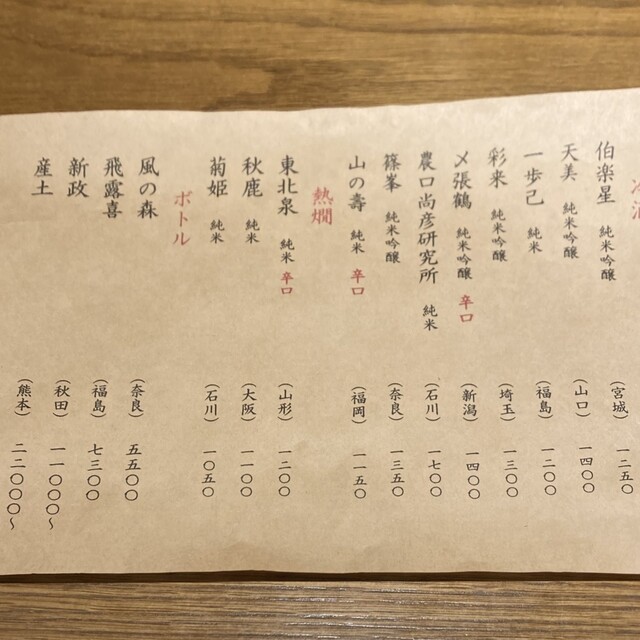 冷酒
伯楽星 純米吟醸 (宮城) 一二五〇
天美 純米吟醸 (山口) 一四〇〇
一歩己 純米 (福島) 一二〇〇
彩来 純米吟醸 (埼玉) 一三〇〇
〆張鶴 純米吟醸 辛口 (新潟) 一四〇〇
農口尚彦研究所 純米 (石川) 一七〇〇
篠峯 純米吟醸 (奈良) 一三五〇
山の壽 純米 辛口 (福岡) 一一五〇
熱燗
東北泉 純米 辛口 (山形) 一二〇〇
秋鹿 純米 (大阪) 一一〇〇
菊姫 純米 (石川) 一〇五〇
ボトル
風の森 (奈良) 五五〇〇
飛露喜 (福島) 七三〇〇
新政 (秋田) 一一〇〇〇~
産土 (熊本) 二二〇〇〇~